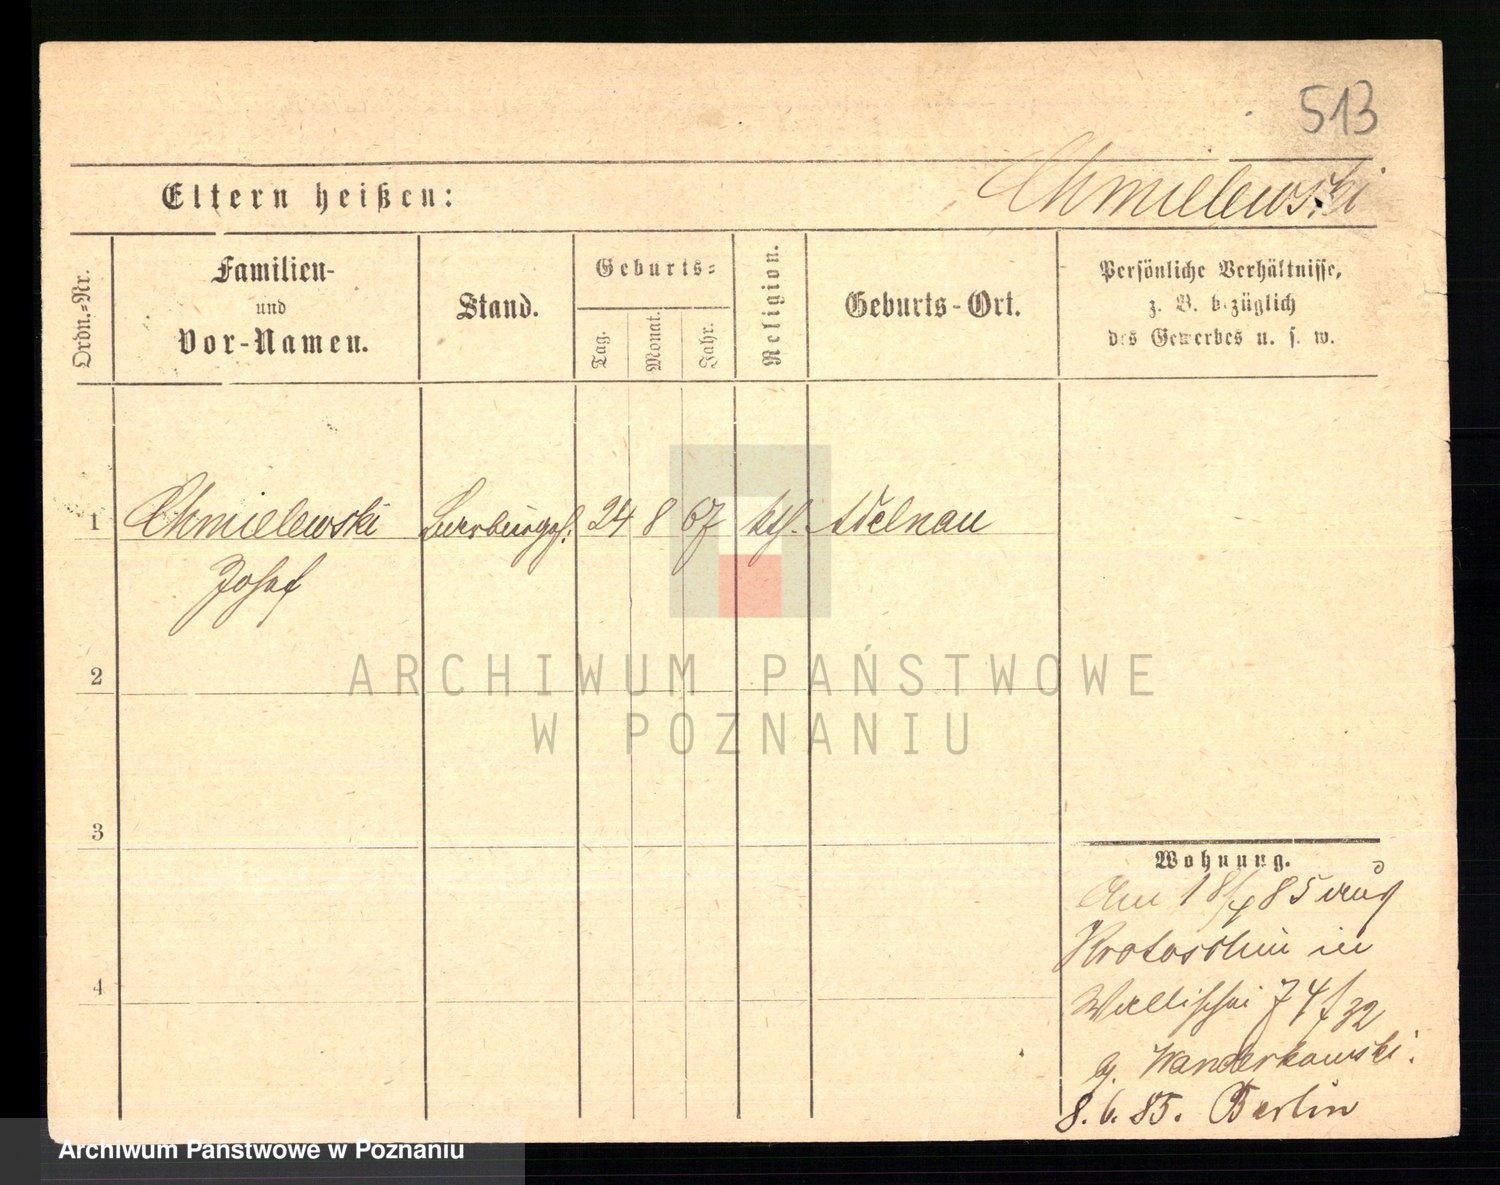 513
Eltern heißen:
Chmielewski
Ordn.=Nr.
Familien-
und
Vor-Namen.
Stand.
Geburts=
Tag.
Monat.
Jahr.
Religion.
Geburts-Ort.
Persönliche Verhältnisse,
z. B. bezüglich
des Gewerbes u. s. w.
1
Chmielewski
24 8 67 kth. Adelnau
Josef
2
ARCHIWUM PAŃSTWOWE
W POZNANIU
3
Wohnung.
Am 18/4 85 aus
Krotoschin in
Wallischei 74/32
b. Wanderkowski.
8.6.85. Berlin
4
Archiwum Państwowe w Poznaniu